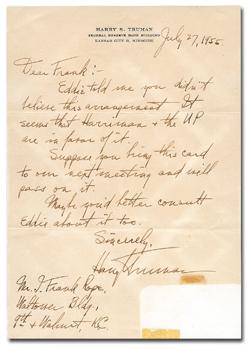 HARRY S. TRUMAN
FEDERAL RESERVE BANK BUILDING
KANSAS CITY 6, MISSOURI
July 27, 1955
Dear Frank:-
Eddie told me you didn't
believe this arrangement. It
seems that Harriman & the UP
are in favor of it.
Suppose you bring this card
to our next meeting and will
pass on it.
Maybe you'd better consult
Eddie about it too.
Sincerely,
Harry Truman
Mr. J. Frank Pope,
Waltower Bldg,
9th & Walnut, KC.